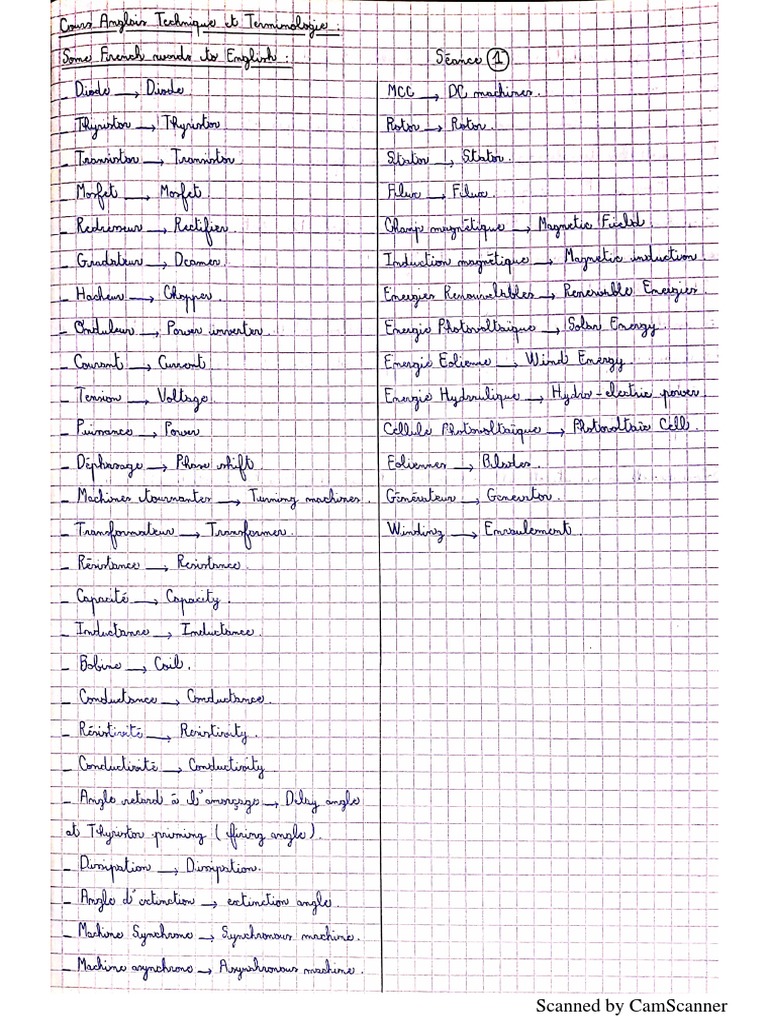 Cours Anglais Technique et Terminologie :
Some French words to English :
Séance 1
_ Diode → Diode
_ Thyristor → Thyristor
_ Transistor → Transistor
_ Mosfet → Mosfet
_ Redresseur → Rectifier
_ Gradateur → Dcamer
_ Hacheur → Chopper.
_ Onduleur → Power inverter.
_ Courant → Current
_ Tension → Voltage
_ Puissance → Power
_ Déphasage → Phase shift
_ Machines tournantes → Turning machines.
_ Transformateur → Transformer.
_ Résistance → Resistance.
_ Capacité → Capacity.
_ Inductance → Inductance.
_ Bobine → Coil.
_ Conductance → Conductance.
_ Résistivité → Resistivity.
_ Conductivité → Conductivity
_ Angle retard à l'amorçage → Delay angle
at Thyristor priming (firing angle).
_ Dissipation → Dissipation.
_ Angle d'extinction → extinction angle.
_ Machine Synchrone → Synchronous machine.
_ Machine asynchrone → Asynchronous machine.
MCC → DC machines.
Rotor → Rotor.
Stator → Stator.
Flux → Flux.
Champ magnétique → Magnetic Field.
Induction magnétique → Magnetic induction.
Energies Renouvelables → Renewable Energies
Energie Photovoltaïque → Solar Energy.
Energie Eolienne → Wind Energy.
Energie Hydraulique → Hydro-electric power.
Cellule Photovoltaïque → Photovoltaic Cell.
Eoliennes →
Générateur → Generator.
Winding → Enroulement.
Scanned by CamScanner